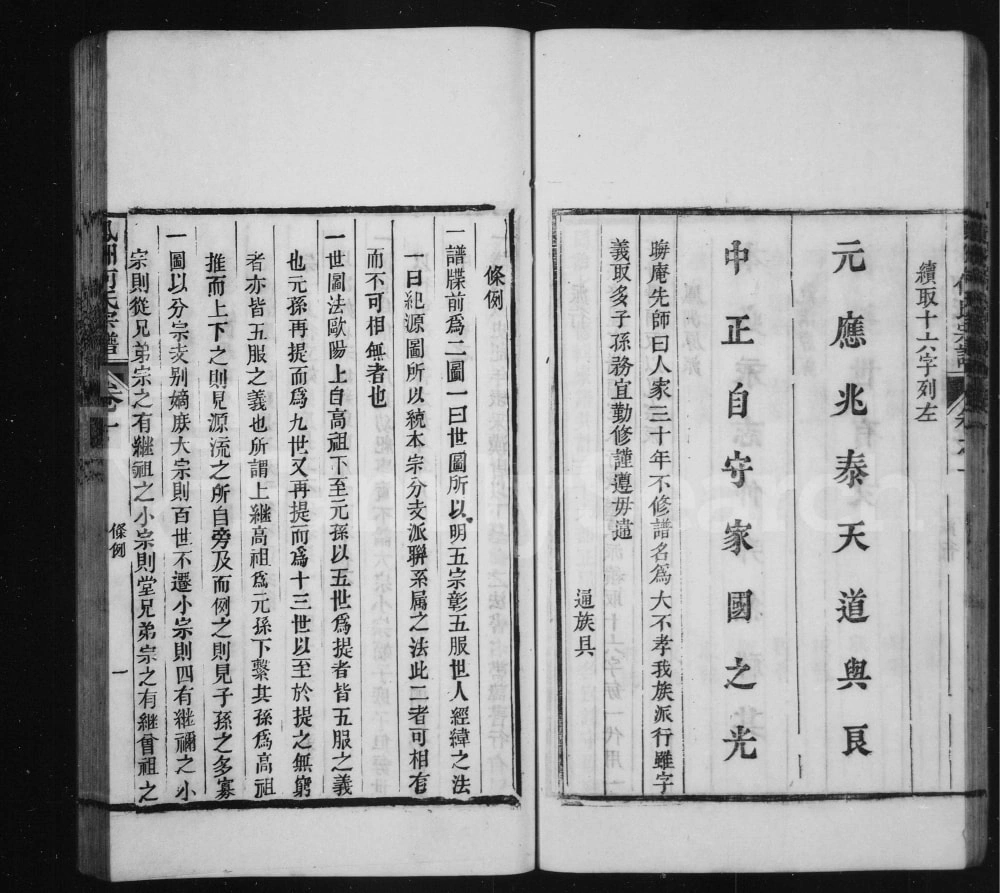 續取十六字列左
元應兆泰天道與良
中正自守家國之光
聨庵先師曰人家三十年不修譜名爲大不孝我族派行雖字
義取多子孫務宜勤修謹遵毋違
通族具
條例
一譜牒前爲二圖一曰世圖所以明五宗彰五服世人經緯之法
一曰紀源圖所以統本宗分支派聯系属之法此二者可相有
而不可相無者也
一世圖法歐陽上自高祖下至元孫以五世爲提者皆五服之義
也元孫再提而爲九世又再提而爲十三世以至於提之無窮
者亦皆五服之義也所謂上継高祖爲元孫下繫其孫爲高祖
推而上下之則見源流之所自旁及而例之則見子孫之多寡
一圖以分宗支别嫡庶大宗則百世不遷小宗則四有継禰之小
宗則從兄弟宗之有継祖之小宗則堂兄弟宗之有継曾祖之
何氏宗譜
卷之一
條例
一